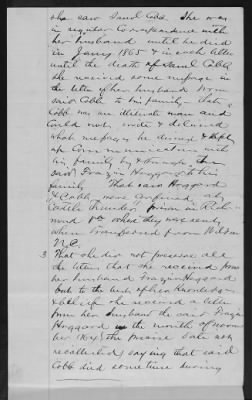 she saw Saml Cobb. She was
in regular correspondence with
her husband until he died
in Jany 1865 & in each letter
until the death of Saml Cobb
she received some message in
the letter of her husband from
said Cobb to his family - that
Cobb was an illiterate man and
could not write & delivered
what messages he desired & kept
up communication with
his family by & through the
said Frazier Hoggard to his
family. That said Hoggard
& Cobb were confined at
Castle Thunder prison in Rich-
mond Va where they were sent
when transferred from Wilson
N.C.
3 That she did not preserve all
the letters that she received from
her husband Frazier Hoggard
but to the best of her knowledge
& belief she received a letter
from her husband the said Frazier
Hoggard in the month of Novem
ber 1864, the precise date not
recollected, saying that said
Cobb died some time during